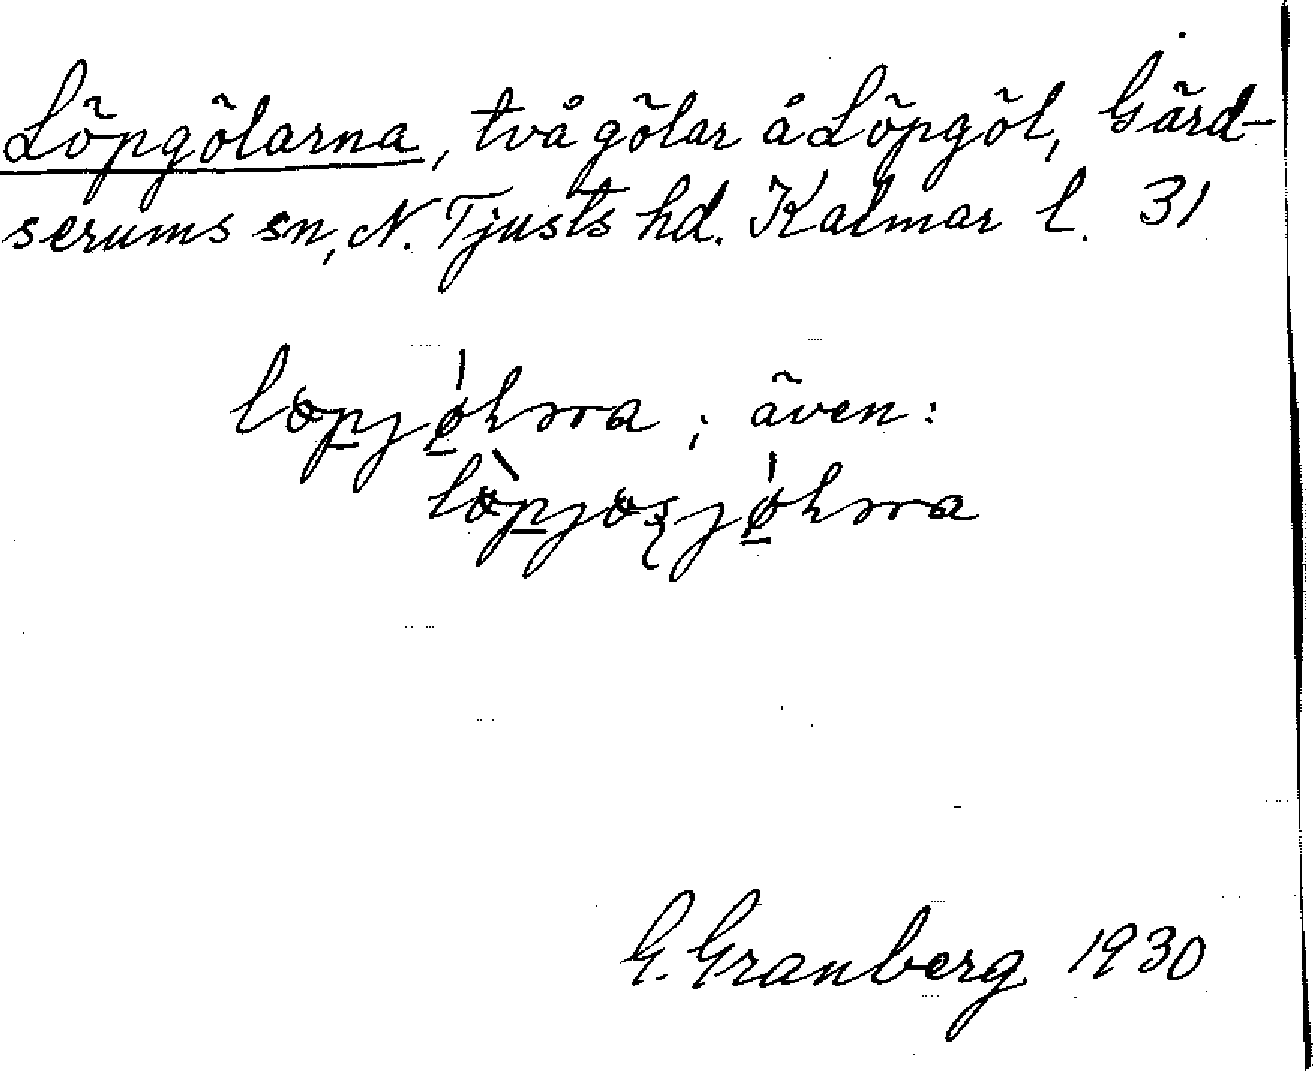 Löpgölarna, två gölar å Löpgöl, Gärd-
serums sn, N. Tjusts hd. Kalmar l. 31
även:
G. Granberg 1930